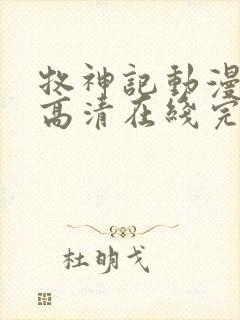 牧神記動漫
高清在綫完
杜明戈